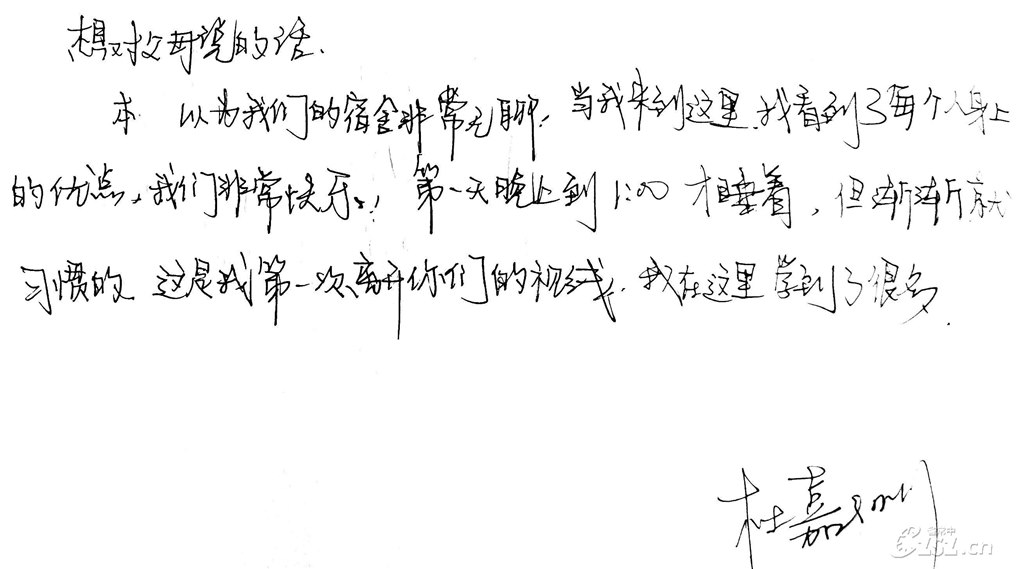 想对父母说的话.
本 以为我们的宿舍非常无聊,当我来到这里,我看到了每个人身上
的优点,我们非常快乐.,第一天晚上到1:00才睡着,但渐渐就
习惯的 这是我第一次离开你们的视线,我在这里学到了很多.
杜嘉
161.cn